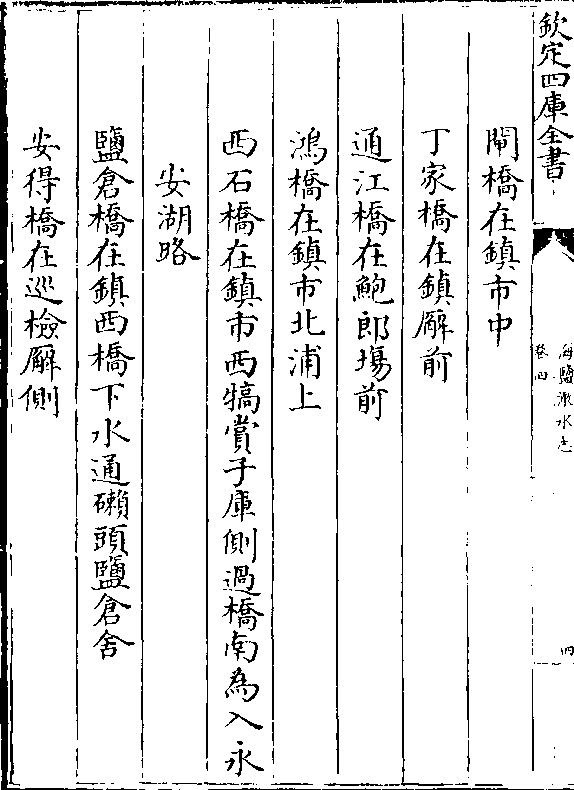 欽定四庫全書
海鹽澉水志
卷四
四
閘橋在鎮市中
丁家橋在鎮廨前
通江橋在鮑郎場前
鴻橋在鎮市北浦上
西石橋在鎮市西犒賞子庫側過橋南為入永
安湖路
鹽倉橋在鎮西橋下水通𥗬頭鹽倉舍
安得橋在巡檢廨側